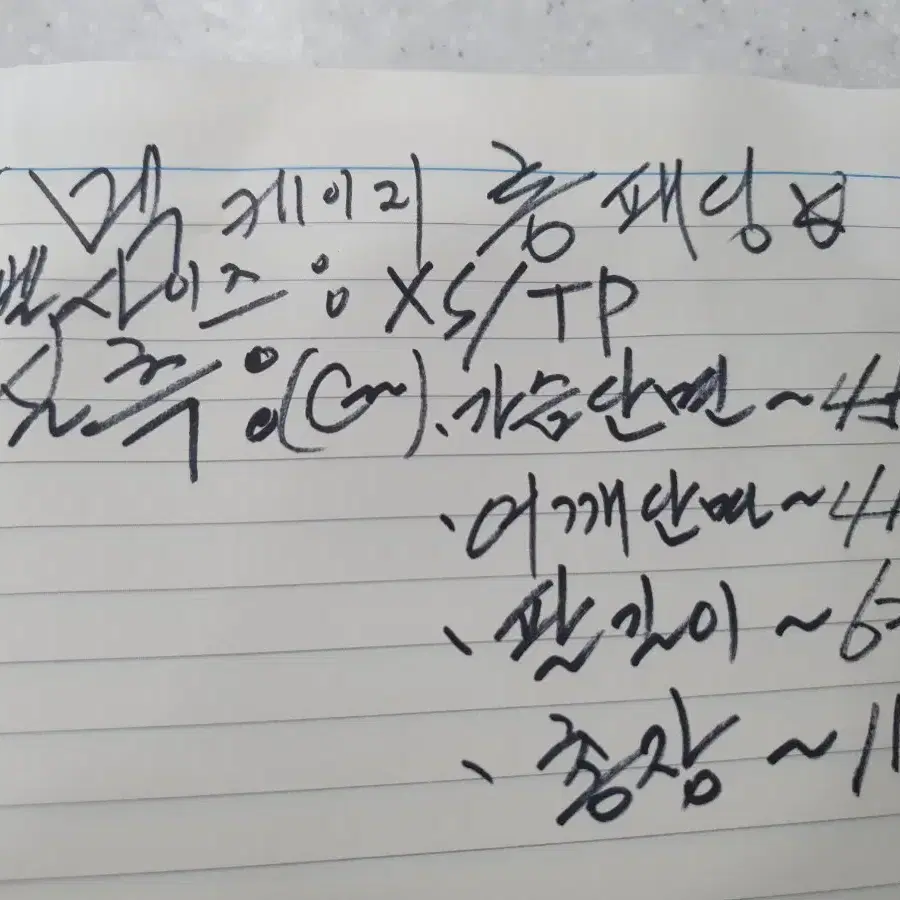 케이리 롱 패딩
사이즈: XS/TP
실측:(Cm). 가슴단면~4
. 어깨단면~41
. 팔길이~6
. 총장~11